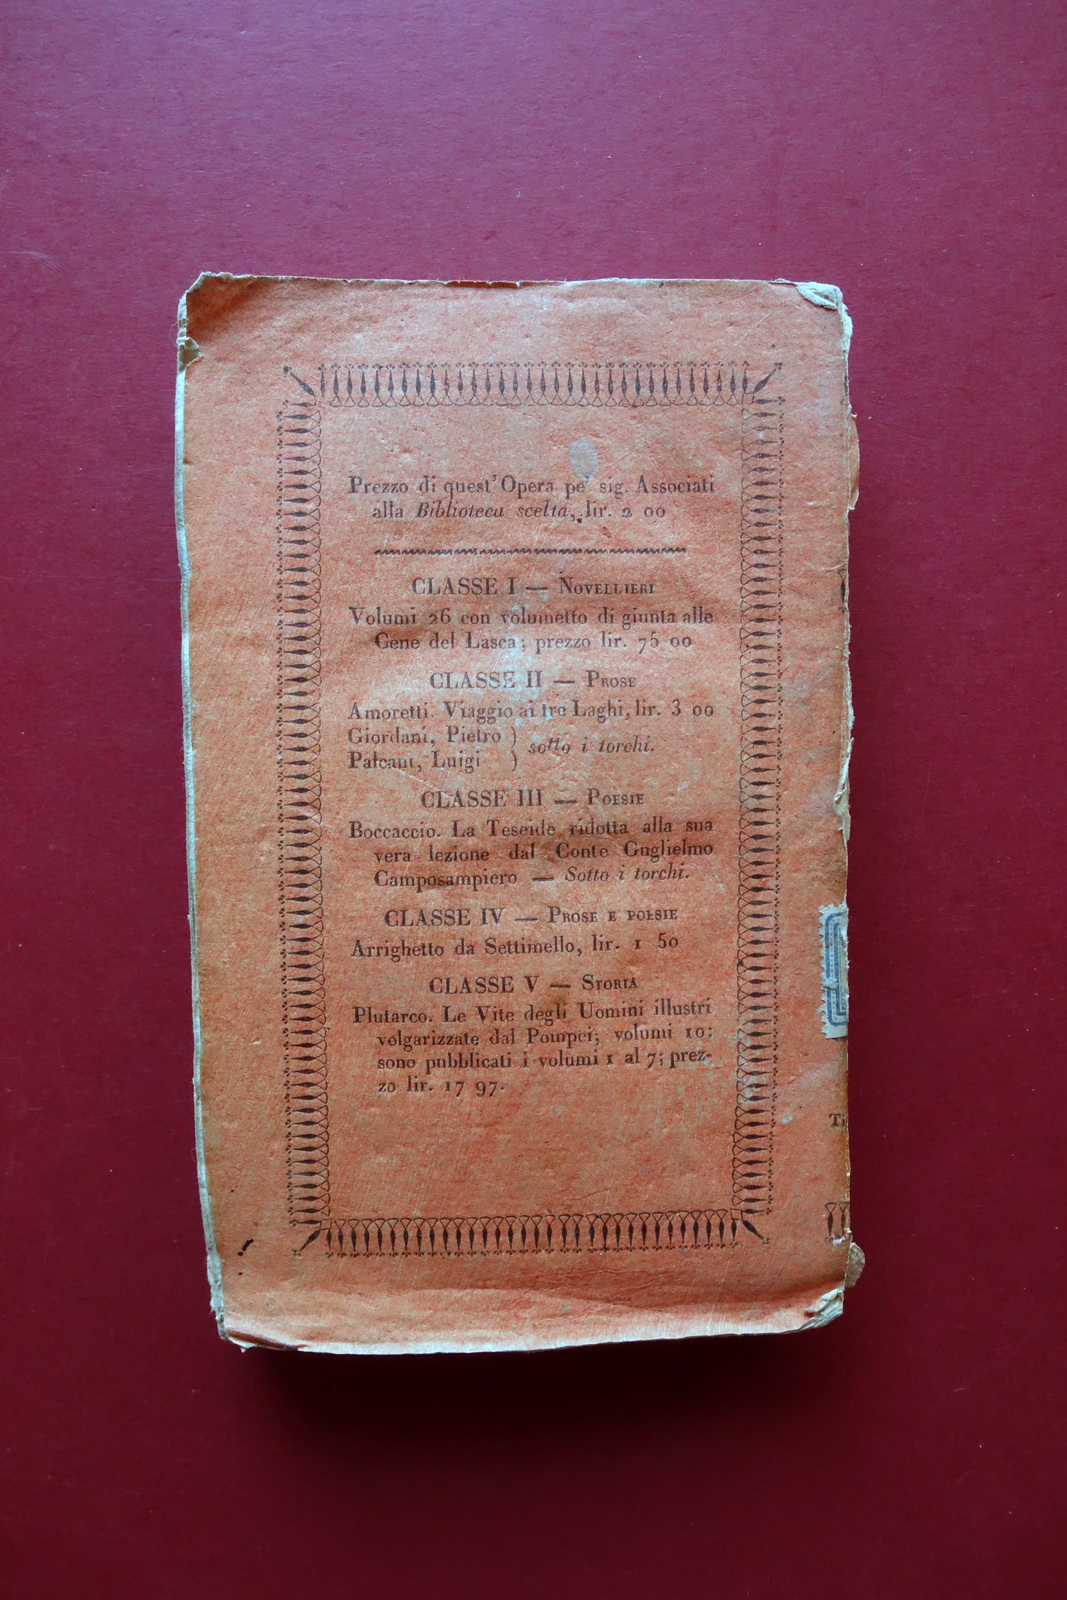 Prezzo di quest'Opera pe' sig. Associati
alla Biblioteca scelta, lir. 2 00
CLASSE I — NOVELLIERI
Volumi 26 con volumetto di giunta alle
Cene del Lasca; prezzo lir. 75 00
CLASSE II — PROSE
Amoretti. Viaggio ai tre Laghi, lir. 3 00
Giordani, Pietro
Palcani, Luigi } sotto i torchi.
CLASSE III — POESIE
Boccaccio. La Teseide ridotta alla sua
vera lezione dal Conte Guglielmo
Camposampiero — Sotto i torchi.
CLASSE IV — PROSE E POESIE
Arrighetto da Settimello, lir. 1 50
CLASSE V — STORIA
Plutarco. Le Vite degli Uomini illustri
volgarizzate dal Pompei; volumi 10:
sono pubblicati i volumi 1 al 7; prez-
zo lir. 17 97.